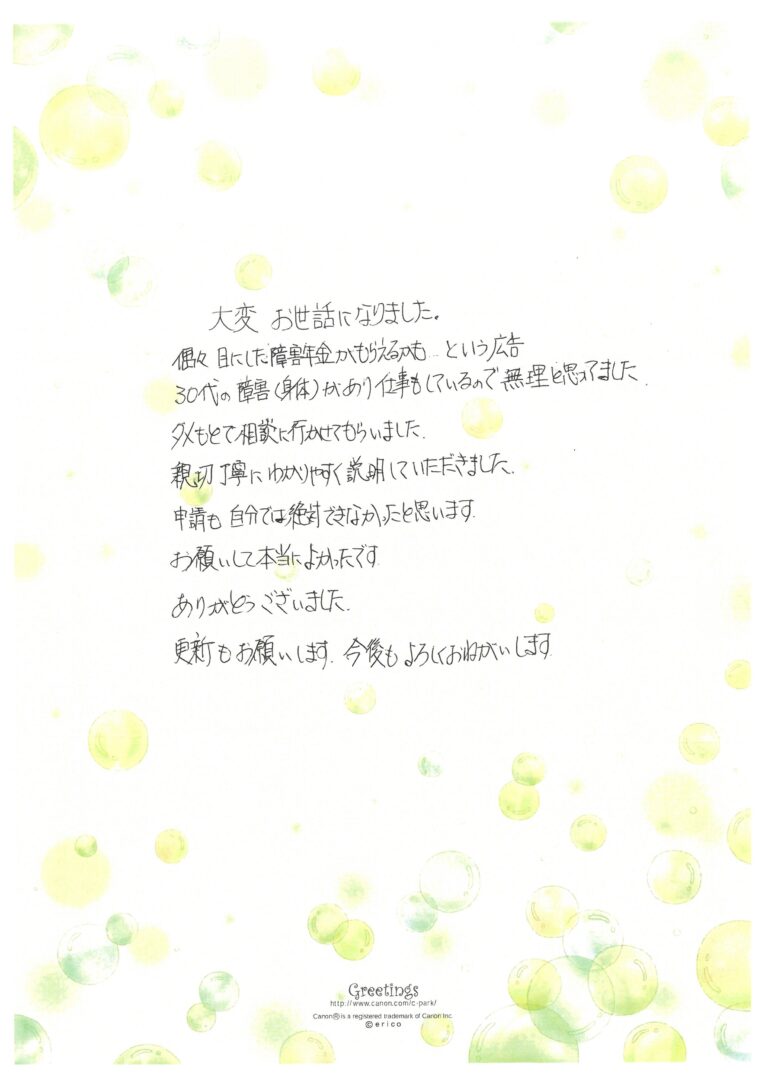 大変 お世話になりました。
偶々 目にした障害年金がもらえるかも… という広告
30代の障害(身体)があり仕事もしているので無理と思ってました.
ダメもとで相談に行かせてもらいました.
親切丁寧にわかりやすく説明していただきました.
申請も自分では絶対できなかったと思います.
お願いして本当によかったです
ありがとうございました.
更新もお願いします. 今後もよろしくおねがいします
Greetings
http://www.canon.com/c-park/
Canon®is a registered trademark of Canon Inc
©erico